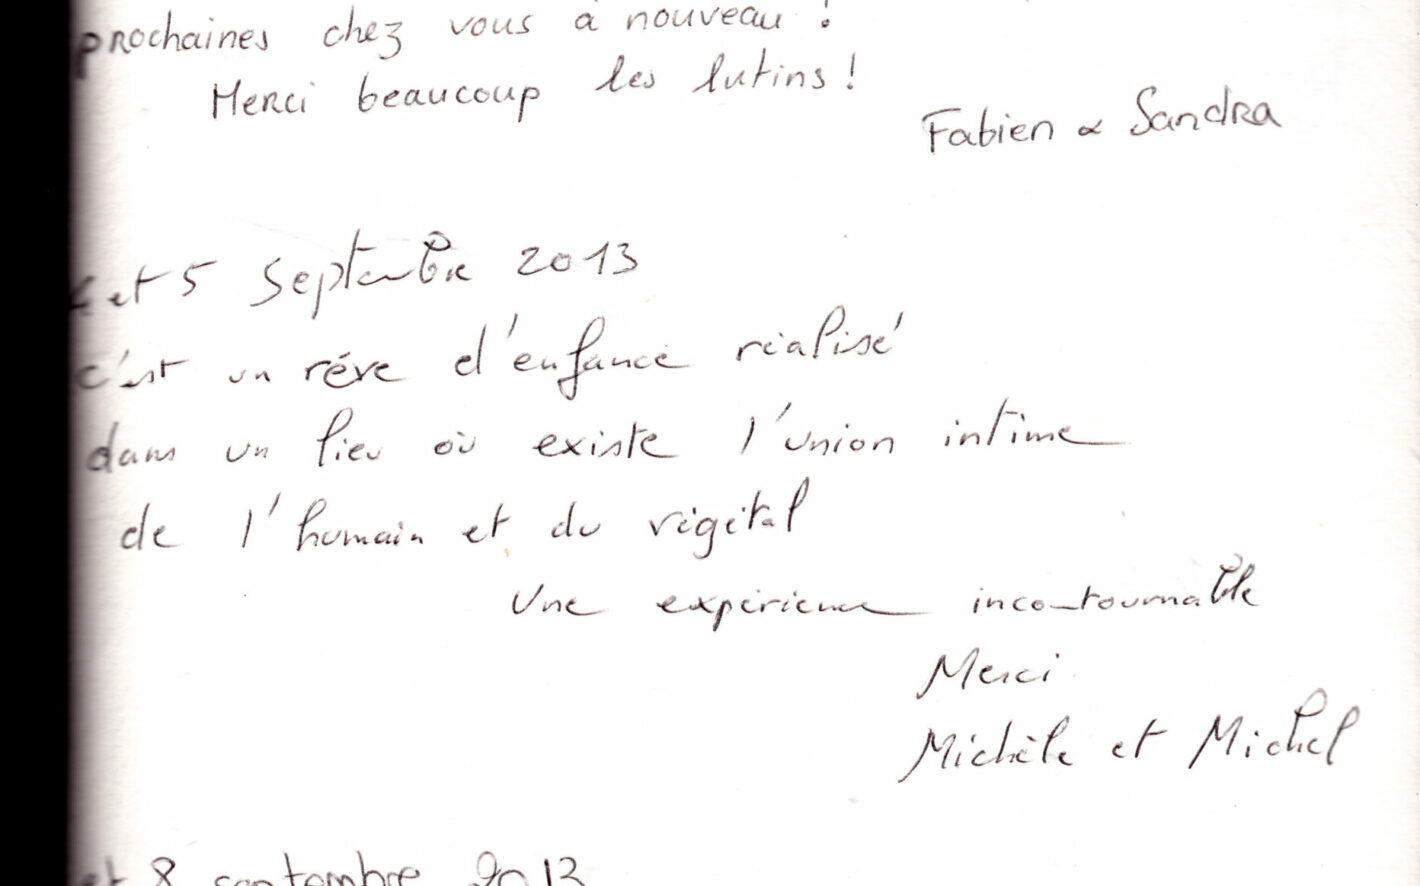 prochaines chez vous à nouveau !
Merci beaucoup les lutins !
Fabien & Sandra
4 et 5 Septembre 2013
c'est un rêve d'enfance réalisé
dans un lieu où existe l'union intime
de l'humain et du végétal
Une expérience incontournable
Merci
Michèle et Michel
et 8 septembre 2013